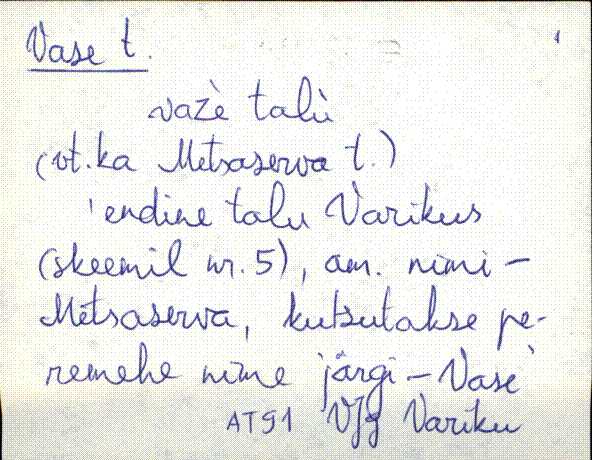 Vase t.
važè talù
(vt. ka Metsaserva t.)
'endine talu Varikus
(skeemil nr. 5), am. nimi –
Metsaserva, kutsutakse pe-
remehe nime järgi – Vase'
AT91 VJg Variku